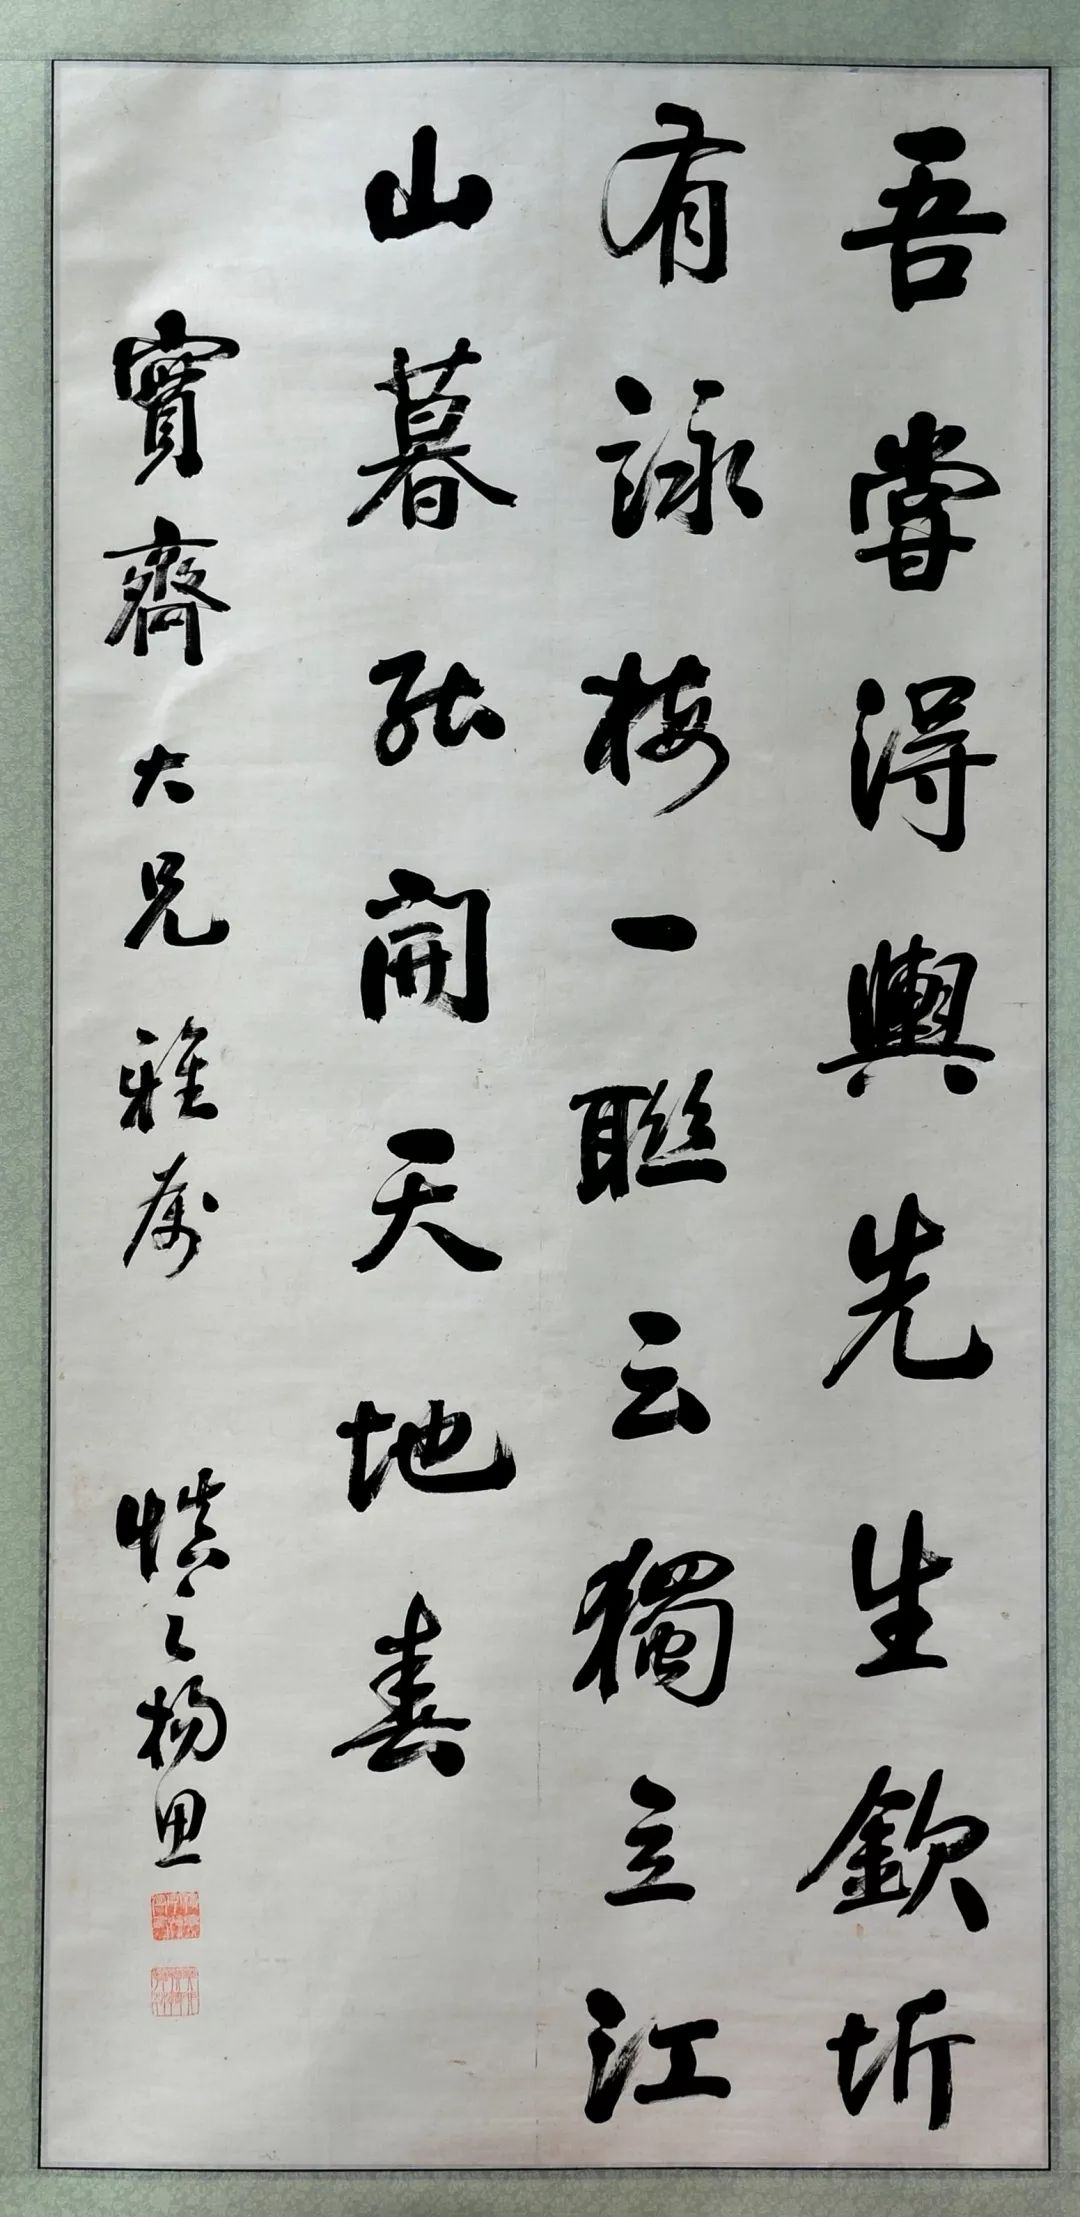 吾嘗得輿先生欽圻
有詠梅一聯云獨立江
山暮能開天地春
寶齋大兄雅属
慎之楊思